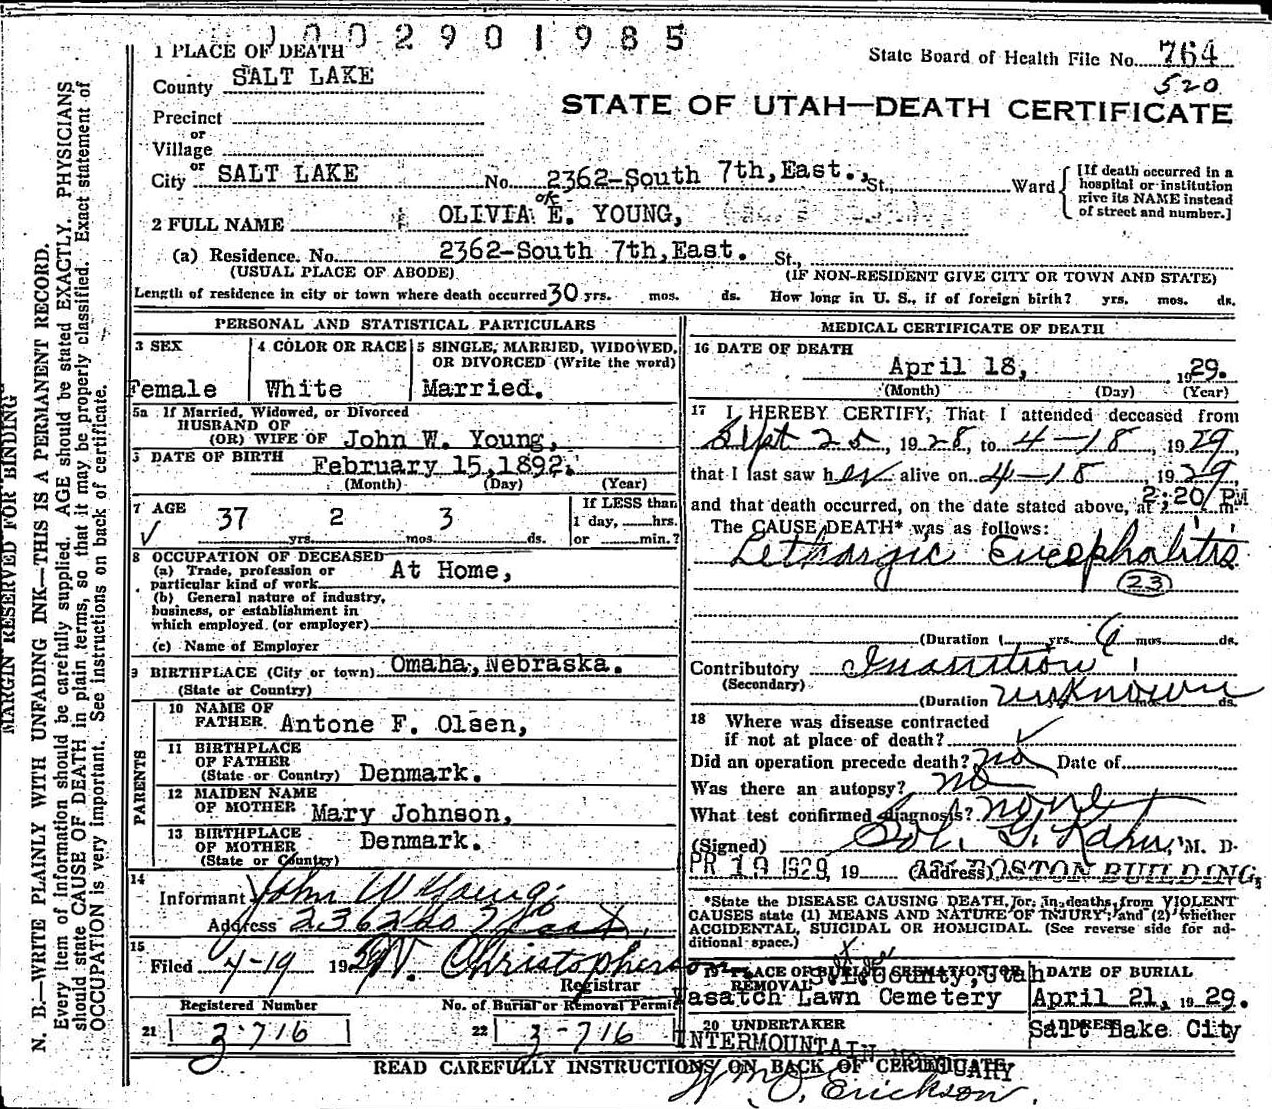 1002901985
State Board of Health File No. 764
520
STATE OF UTAH—DEATH CERTIFICATE
1 PLACE OF DEATH
County SALT LAKE
Precinct
or
Village
or
City SALT LAKE No. 2362-South 7th,East., St., Ward
[If death occurred in a
hospital or institution
give its NAME instead
of street and number.]
ok
2 FULL NAME OLIVIA E. YOUNG,
(a) Residence. No. 2362-South 7th,East. St.,
(USUAL PLACE OF ABODE) (IF NON-RESIDENT GIVE CITY OR TOWN AND STATE)
Length of residence in city or town where death occurred 30 yrs. mos. ds. How long in U. S., if of foreign birth? yrs. mos. ds.
PERSONAL AND STATISTICAL PARTICULARS
3 SEX
Female
4 COLOR OR RACE
White
5 SINGLE, MARRIED, WIDOWED,
OR DIVORCED (Write the word)
Married.
5a If Married, Widowed, or Divorced
HUSBAND OF
(OR) WIFE OF John W. Young,
DATE OF BIRTH February 15,1892.
(Month) (Day) (Year)
7 AGE
37 yrs. 2 mos. 3 ds.
If LESS than
1 day, hrs.
or min.?
8 OCCUPATION OF DECEASED
(a) Trade, profession or
particular kind of work At Home,
(b) General nature of industry,
business, or establishment in
which employed (or employer)
(c) Name of Employer
9 BIRTHPLACE (City or town) Omaha, Nebraska.
(State or Country)
PARENTS
10 NAME OF
FATHER Antone F. Olsen,
11 BIRTHPLACE
OF FATHER
(State or Country) Denmark.
12 MAIDEN NAME
OF MOTHER Mary Johnson,
13 BIRTHPLACE
OF MOTHER
(State or Country) Denmark.
14
Informant John W Young
Address 2362 So 7 East.
15
Filed 4-19 1929 Christopherson
Registrar
Registered Number
21 3-716
No. of Burial or Removal Permit
22 3-716
MEDICAL CERTIFICATE OF DEATH
16 DATE OF DEATH
April 18, 1929.
(Month) (Day) (Year)
17 I HEREBY CERTIFY, That I attended deceased from
Sept 25, 1928, to 4-18, 1929
that I last saw her alive on 4-18 1929,
and that death occurred, on the date stated above, at 2:20/PM m.
The CAUSE DEATH* was as follows:
Lethargic Encephalitis
23
(Duration yrs. 6 mos. ds.
Contributory Inanition
(Secondary)
(Duration unknown ds.
18 Where was disease contracted
if not at place of death?
Did an operation precede death? no Date of
Was there an autopsy? no
What test confirmed diagnosis? none
(Signed) Sol. G. Kahn, M. D.
PR 19 1929, 19 (Address) BOSTON BUILDING,
*State the DISEASE CAUSING DEATH, or, in deaths from VIOLENT
CAUSES state (1) MEANS AND NATURE OF INJURY; and (2) whether
ACCIDENTAL, SUICIDAL OR HOMICIDAL. (See reverse side for ad-
ditional space.)
19 PLACE OF BURIAL, CREMATION OR
REMOVAL S.L. County,Utah
Wasatch Lawn Cemetery
DATE OF BURIAL
April 21, 1929.
20 UNDERTAKER
INTERMOUNTAIN MORTUARY
ADDRESS
Salt Lake City
Wm J. Erickson
READ CAREFULLY INSTRUCTIONS ON BACK OF CERTIFICATE
MARGIN RESERVED FOR BINDING
N. B.—WRITE PLAINLY WITH UNFADING INK—THIS IS A PERMANENT RECORD.
Every item of information should be carefully supplied. AGE should be stated EXACTLY. PHYSICIANS
should state CAUSE OF DEATH in plain terms, so that it may be properly classified. Exact statement of
OCCUPATION is very important. See instructions on back of certificate.